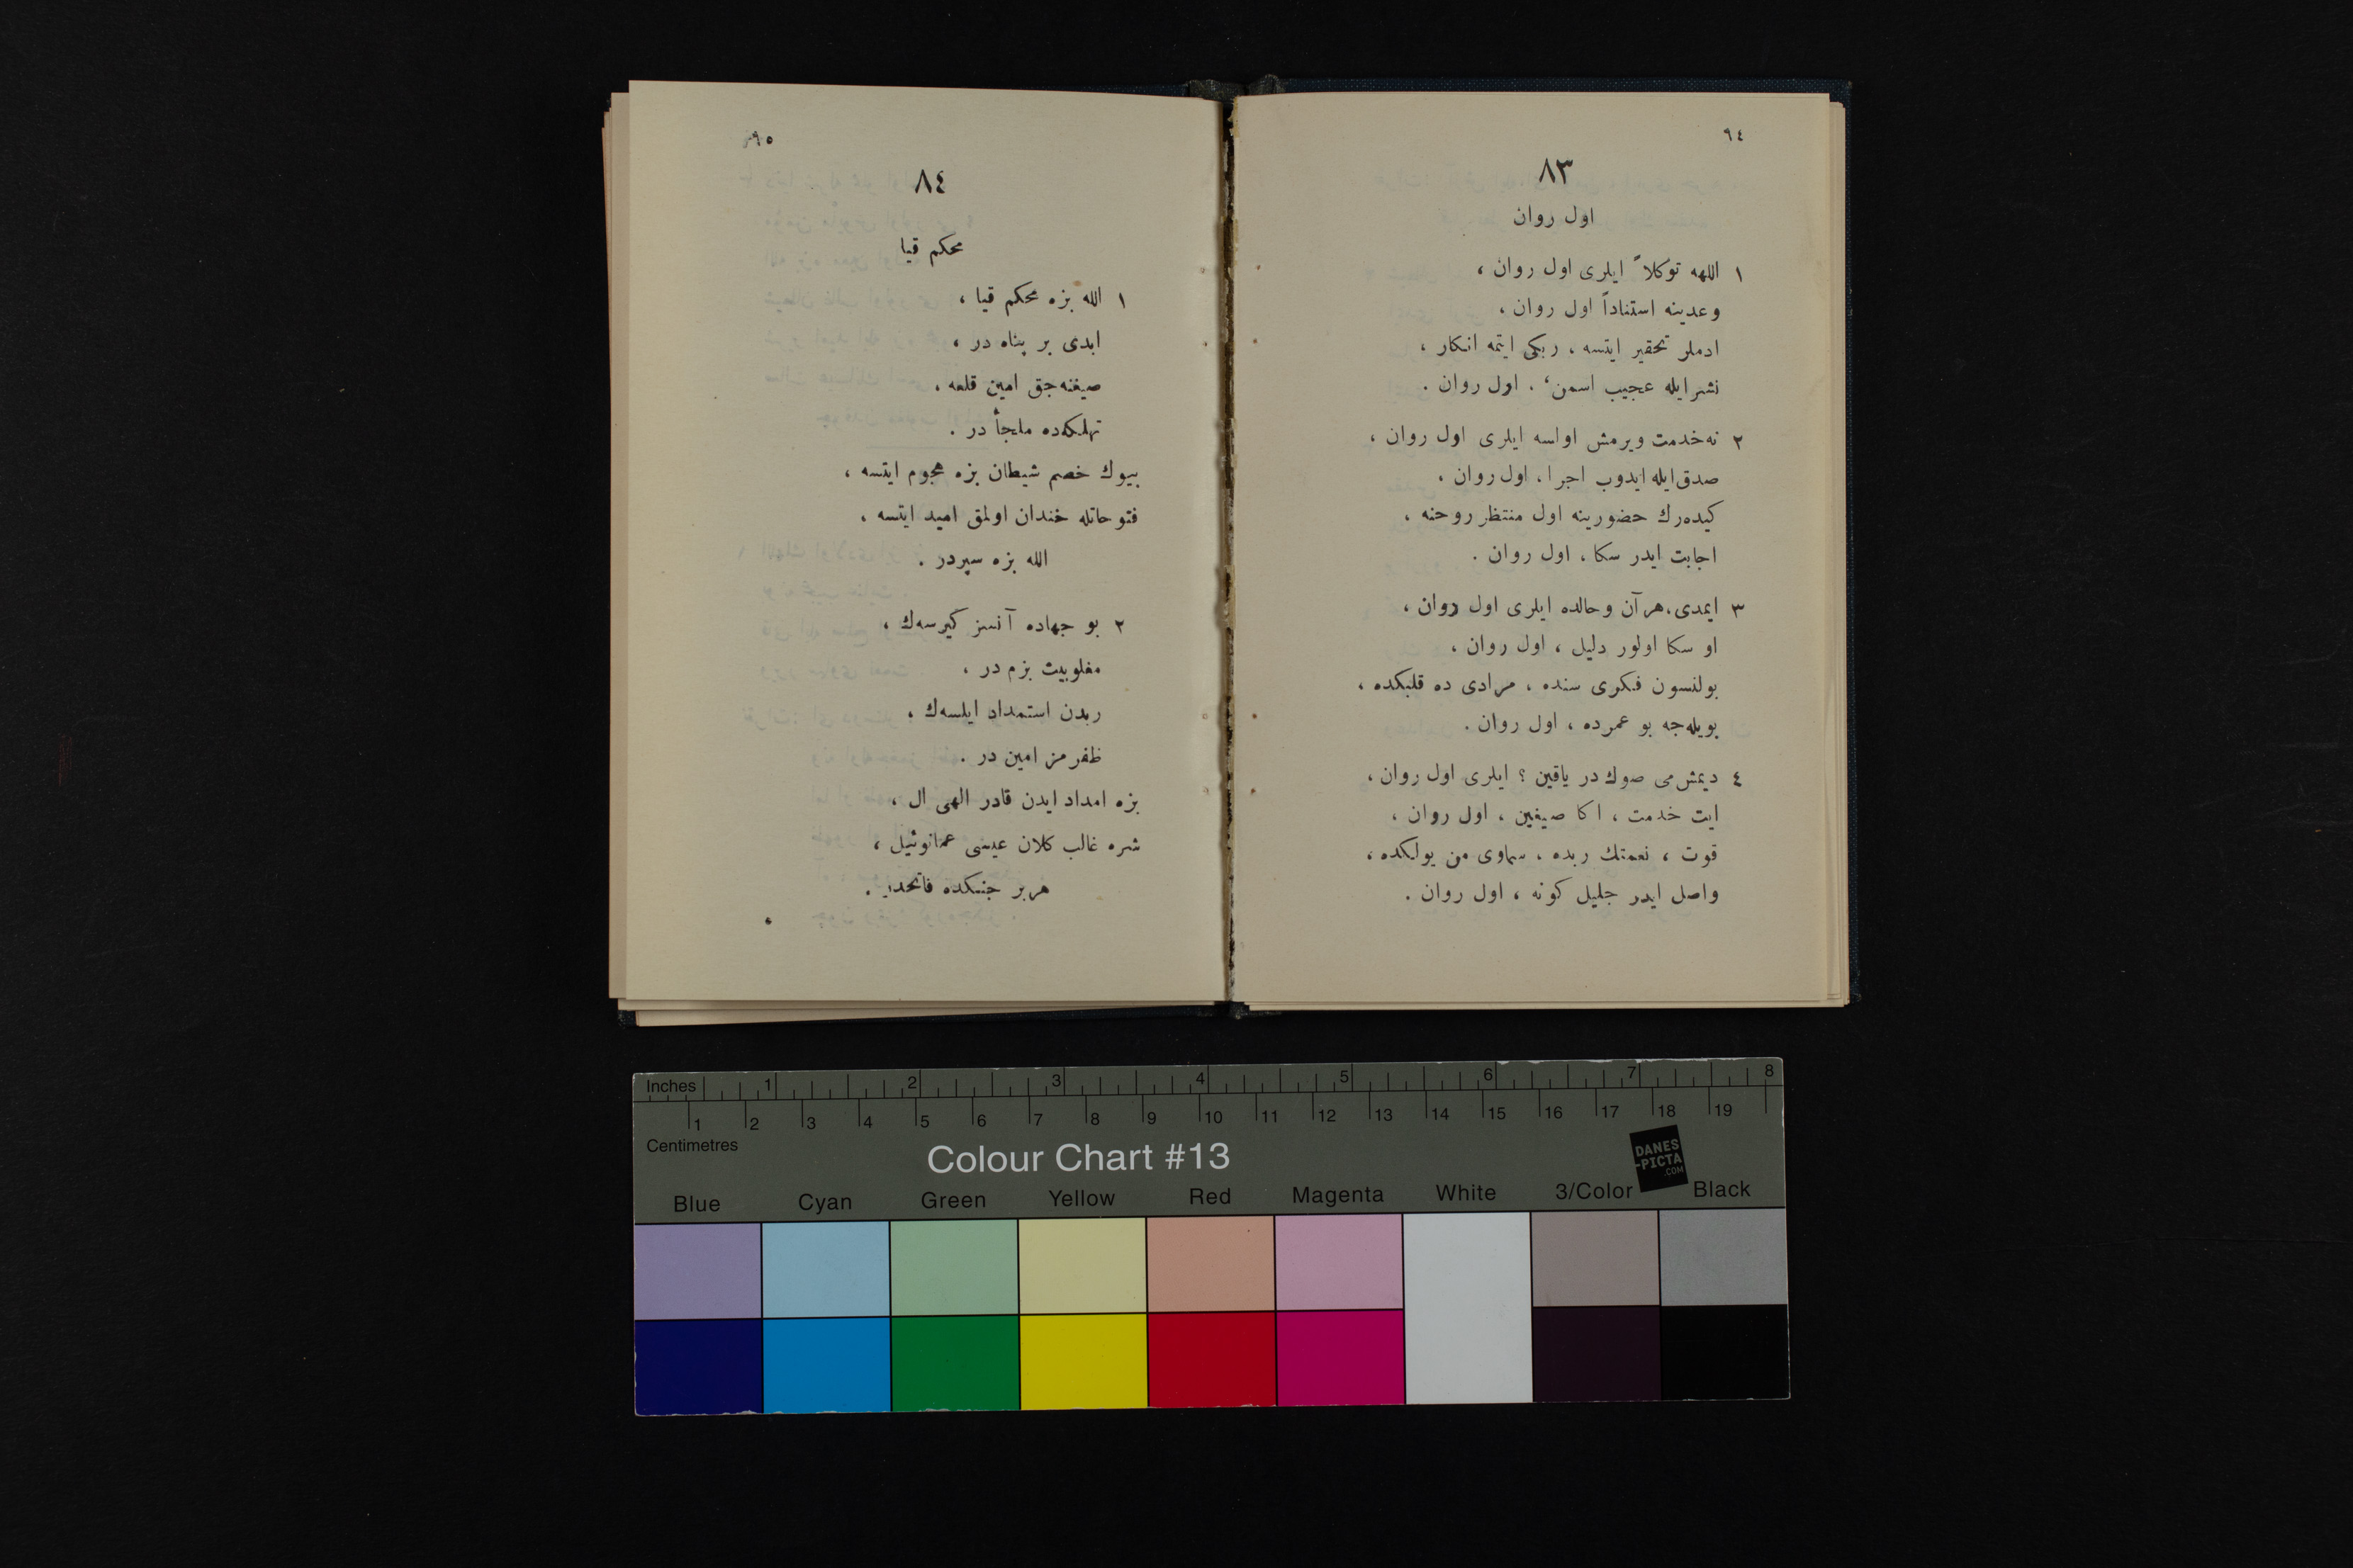 ٩٤
٨٣
اول روان
١ اللهه توكلاً ايلرى اول روان ،
وعدينه استناداً اول روان ،
ادملر تحقير ايتسه ، ربكى ايتمه انكار ،
نشر ايله عجيب اسمن ، اول روان .
٢ نه خدمت ويرمش اولسه ايلرى اول روان ،
صدق ايله ايدوب اجرا ، اول روان ،
كيده‌رك حضورينه اول منتظر روحنه ،
اجابت ايدر سكا ، اول روان .
٣ ايمدى ، هر آن وحالده ايلرى اول روان ،
او سكا اولور دليل ، اول روان ،
بولنسون فكرى سنده ، مرادى ده قلبكده ،
بويله‌جه بو عمرده ، اول روان .
٤ ديمش مى صوك در ياقين ؟ ايلرى اول روان ،
ايت خدمت ، اكا صيغين ، اول روان ،
قوت ، نعمتك ربده ، سماوى من يولكده ،
واصل ايدر جليل كونه ، اول روان .
٩٥
٨٤
محكم قيا
١ الله بزه محكم قيا ،
ابدى بر پناه در ،
صيغنه‌جق امين قلعه ،
تهلكه‌ده ملجأ در .
بيوك خصم شيطان بزه هجوم ايتسه ،
فتوحاتله خندان اولمق اميد ايتسه ،
الله بزه سپردر .
٢ بو جهاده آنسز كيرسه‌ك ،
مغلوبيت بزم در ،
ربدن استمداد ايلسه‌ك ،
ظفرمز امين در .
بزه امداد ايدن قادر الهى ال ،
شره غالب كلان عيسى عمانوئيل ،
هربر جنكده فاتحدر .
Inches 1 2 3 4 5 6 7 8
1 2 3 4 5 6 7 8 9 10 11 12 13 14 15 16 17 18 19
Centimetres
Colour Chart #13
DANES
-PICTA
.COM
Blue Cyan Green Yellow Red Magenta White 3/Color Black